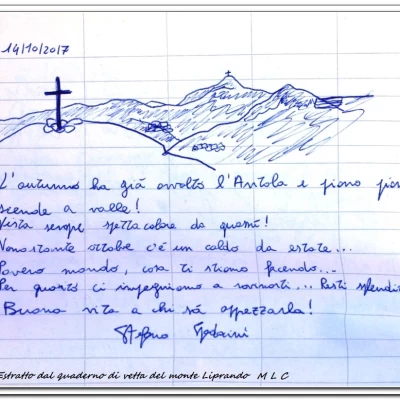 14/10/2017
L'autunno ha già avvolto l'Antola e piano pian
scende a valle!
Vista sempre spettacolare da quassù!
Nonostante ottobre c'è un caldo da estate...
Povero mondo, cosa ti stiamo facendo...
Per quanto ci ingegniamo a rovinarti... Resti splendi
Buona vita a chi sà apprezzarla!
Estratto dal quaderno di vetta del monte Liprando M L C